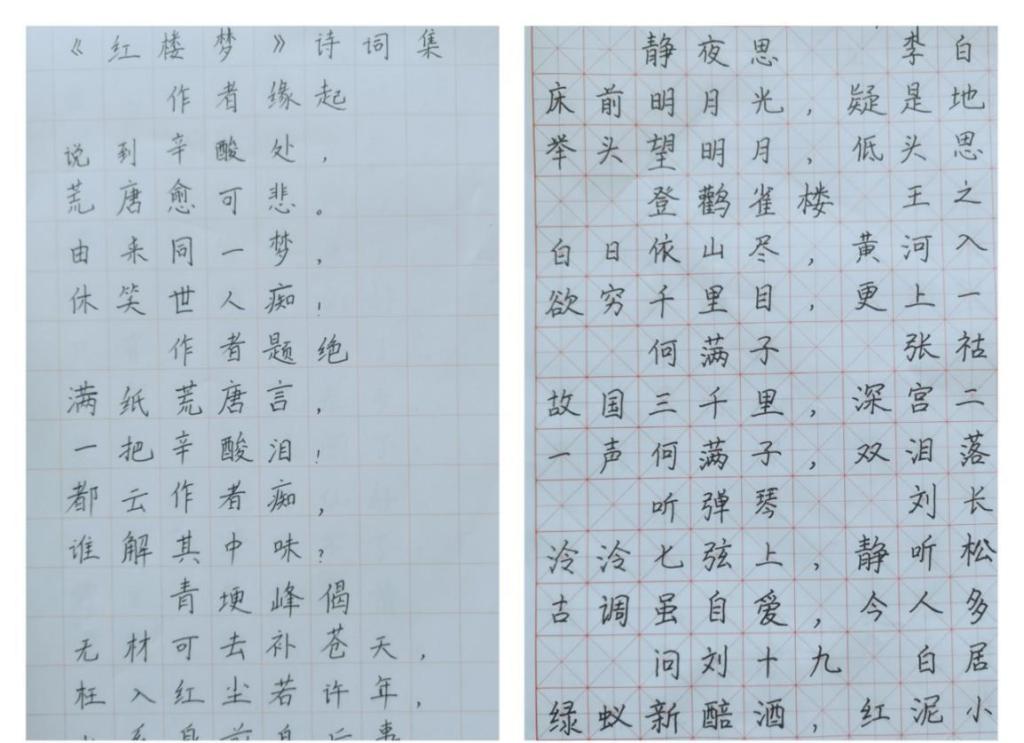 《红楼梦》诗词集
作者缘起
说到辛酸处，
荒唐愈可悲。
由来同一梦，
休笑世人痴！
作者题绝
满纸荒唐言，
一把辛酸泪！
都云作者痴，
谁解其中味？
青埂峰偈
无材可去补苍天，
枉入红尘若许年，
系身前身后事
静夜思 李白
床前明月光，疑是地
举头望明月，低头思
登鹳雀楼 王之
白日依山尽，黄河入
欲穷千里目，更上一
何满子 张祜
故国三千里，深宫二
一声何满子，双泪落
听弹琴 刘长
泠泠七弦上，静听松
古调虽自爱，今人多
问刘十九 白居
绿蚁新醅酒，红泥小